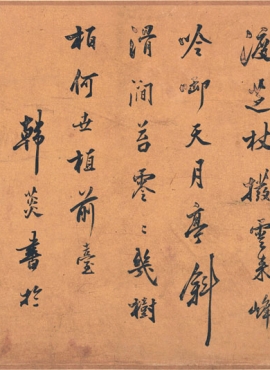 渡芝杖撥雲来峰
吟啣天月亭斜
滑澗苔零〻幾樹
柏何世植前臺
韓菼書於